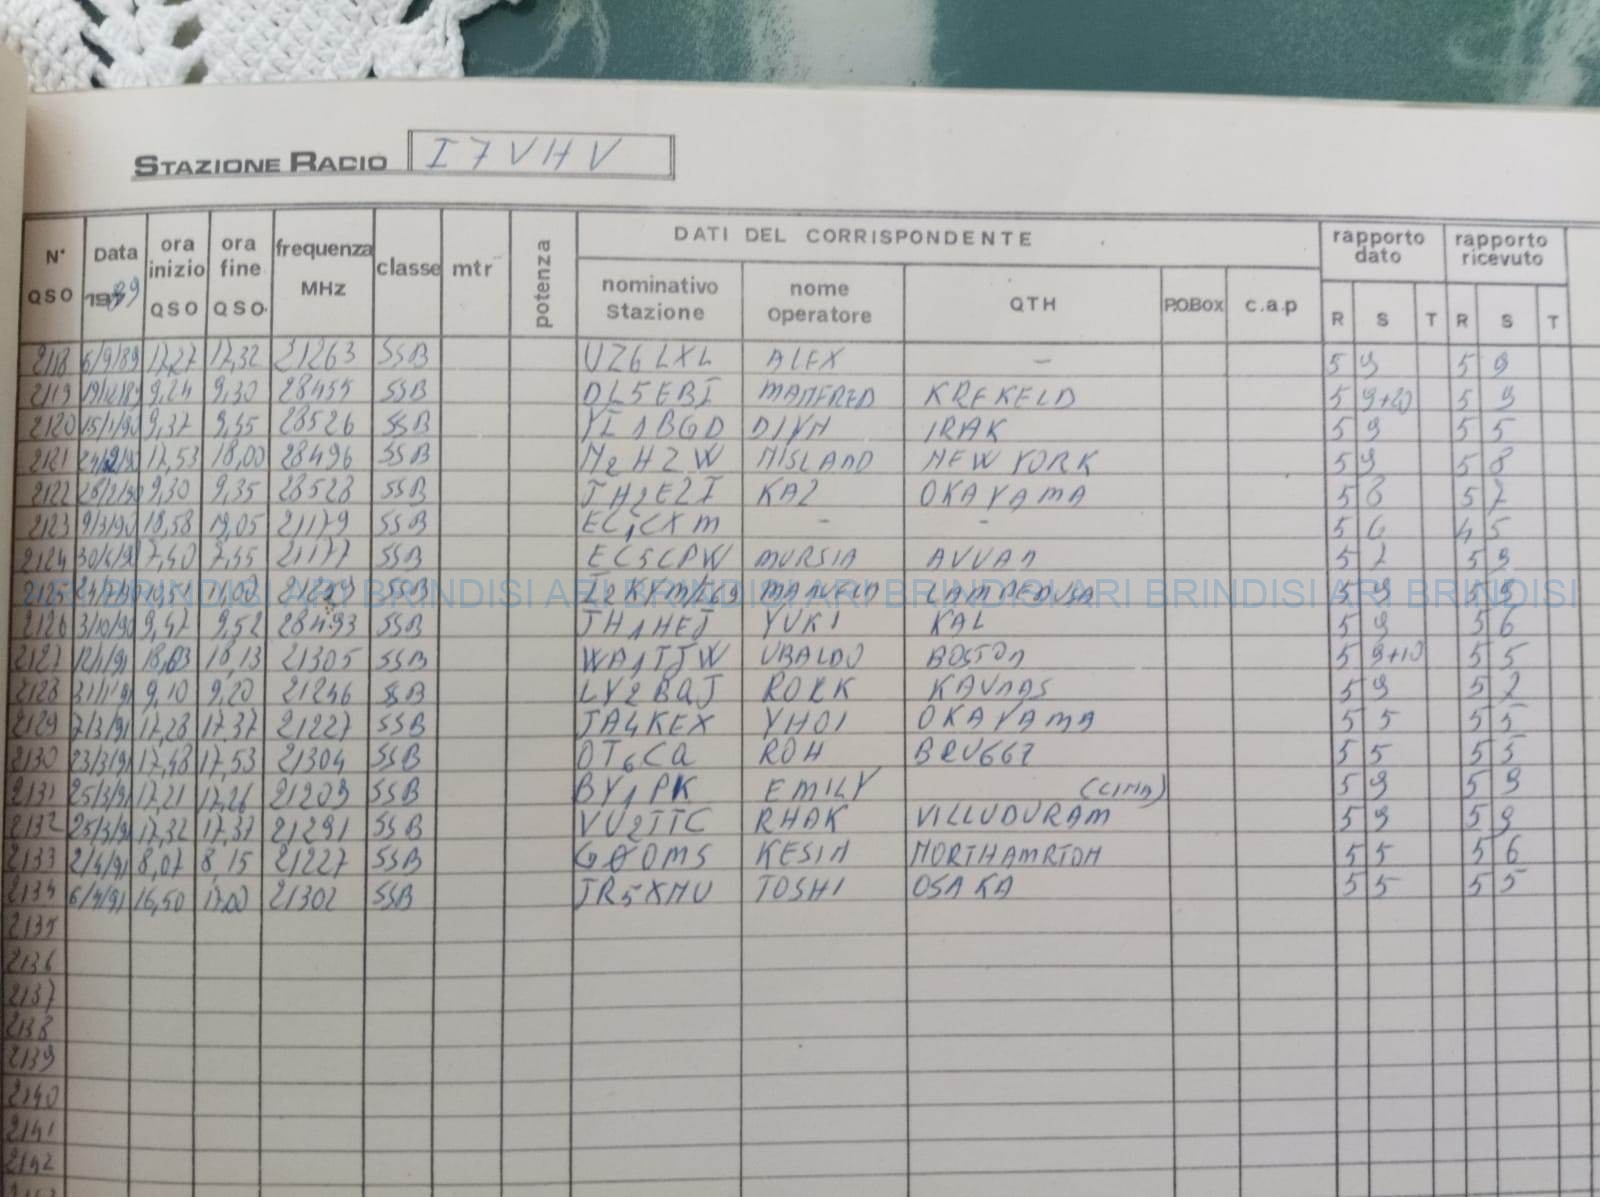 STAZIONE RADIO I7VHV
N° QSO Data 1989 ora inizio QSO ora fine QSO frequenza MHz classe mtr potenza DATI DEL CORRISPONDENTE rapporto dato rapporto ricevuto
nominativo Stazione nome operatore QTH P.O.Box c.a.p R S T R S T
2118 6/9/89 17,27 17,32 21263 SSB UZ6LXL ALEX - 5 9 5 9
2119 19/12/89 9,24 9,30 28455 SSB DL5EBI MANFRED KREKELD 5 9+20 5 9
2120 15/1/90 9,37 9,45 28526 SSB YI1BGD DIYN IRAK 5 9 5 5
2121 17,53 18,00 28496 SSB N2HZW NISLAND NEW YORK 5 9 5 8
2122 28/2/90 9,30 9,35 28528 SSB JH2EZI KAZ OKAYAMA 5 8 5 7
2123 9/3/90 18,58 19,05 21179 SSB EC1CXM - - 5 6 4 5
2124 30/4/90 7,40 7,55 21177 SSB EC5CPW MURSIA 5 7 5 9
2125 11,00 SSB LAMPEDUSA 5 9 5 9
2126 3/10/90 9,47 9,52 28493 SSB JH1HEJ YUKI KAL 5 9 5 6
2127 12/1/91 18,03 18,13 21305 SSB WA1JJW UBALDO BOSTON 5 9+10 5 5
2128 31/1/91 9,10 9,20 21246 SSB LY2BQJ ROLK KAUNAS 5 9 5 7
2129 7/3/91 17,28 17,37 21227 SSB JA4KEX YHOI OKAYAMA 5 5 5 5
2130 23/3/91 17,48 17,53 21304 SSB OT6CQ ROH BRUGGE 5 5 5 5
2131 25/3/91 17,21 17,26 21203 SSB BY1PK EMILY (CINA) 5 9 5 9
2132 25/3/91 17,32 17,37 21291 SSB VU2TTC RHAK VILLUDURAM 5 9 5 9
2133 2/4/91 8,07 8,15 21227 SSB G0OMS KESIN NORTHAMRTON 5 5 5 6
2134 6/4/91 16,50 17,00 21302 SSB JR5XMU TOSHI OSAKA 5 5 5 5
2135
2136
2137
2138
2139
2140
2141
2142
ARI BRINDISI ARI BRINDISI ARI BRINDISI ARI BRINDISI ARI BRINDISI